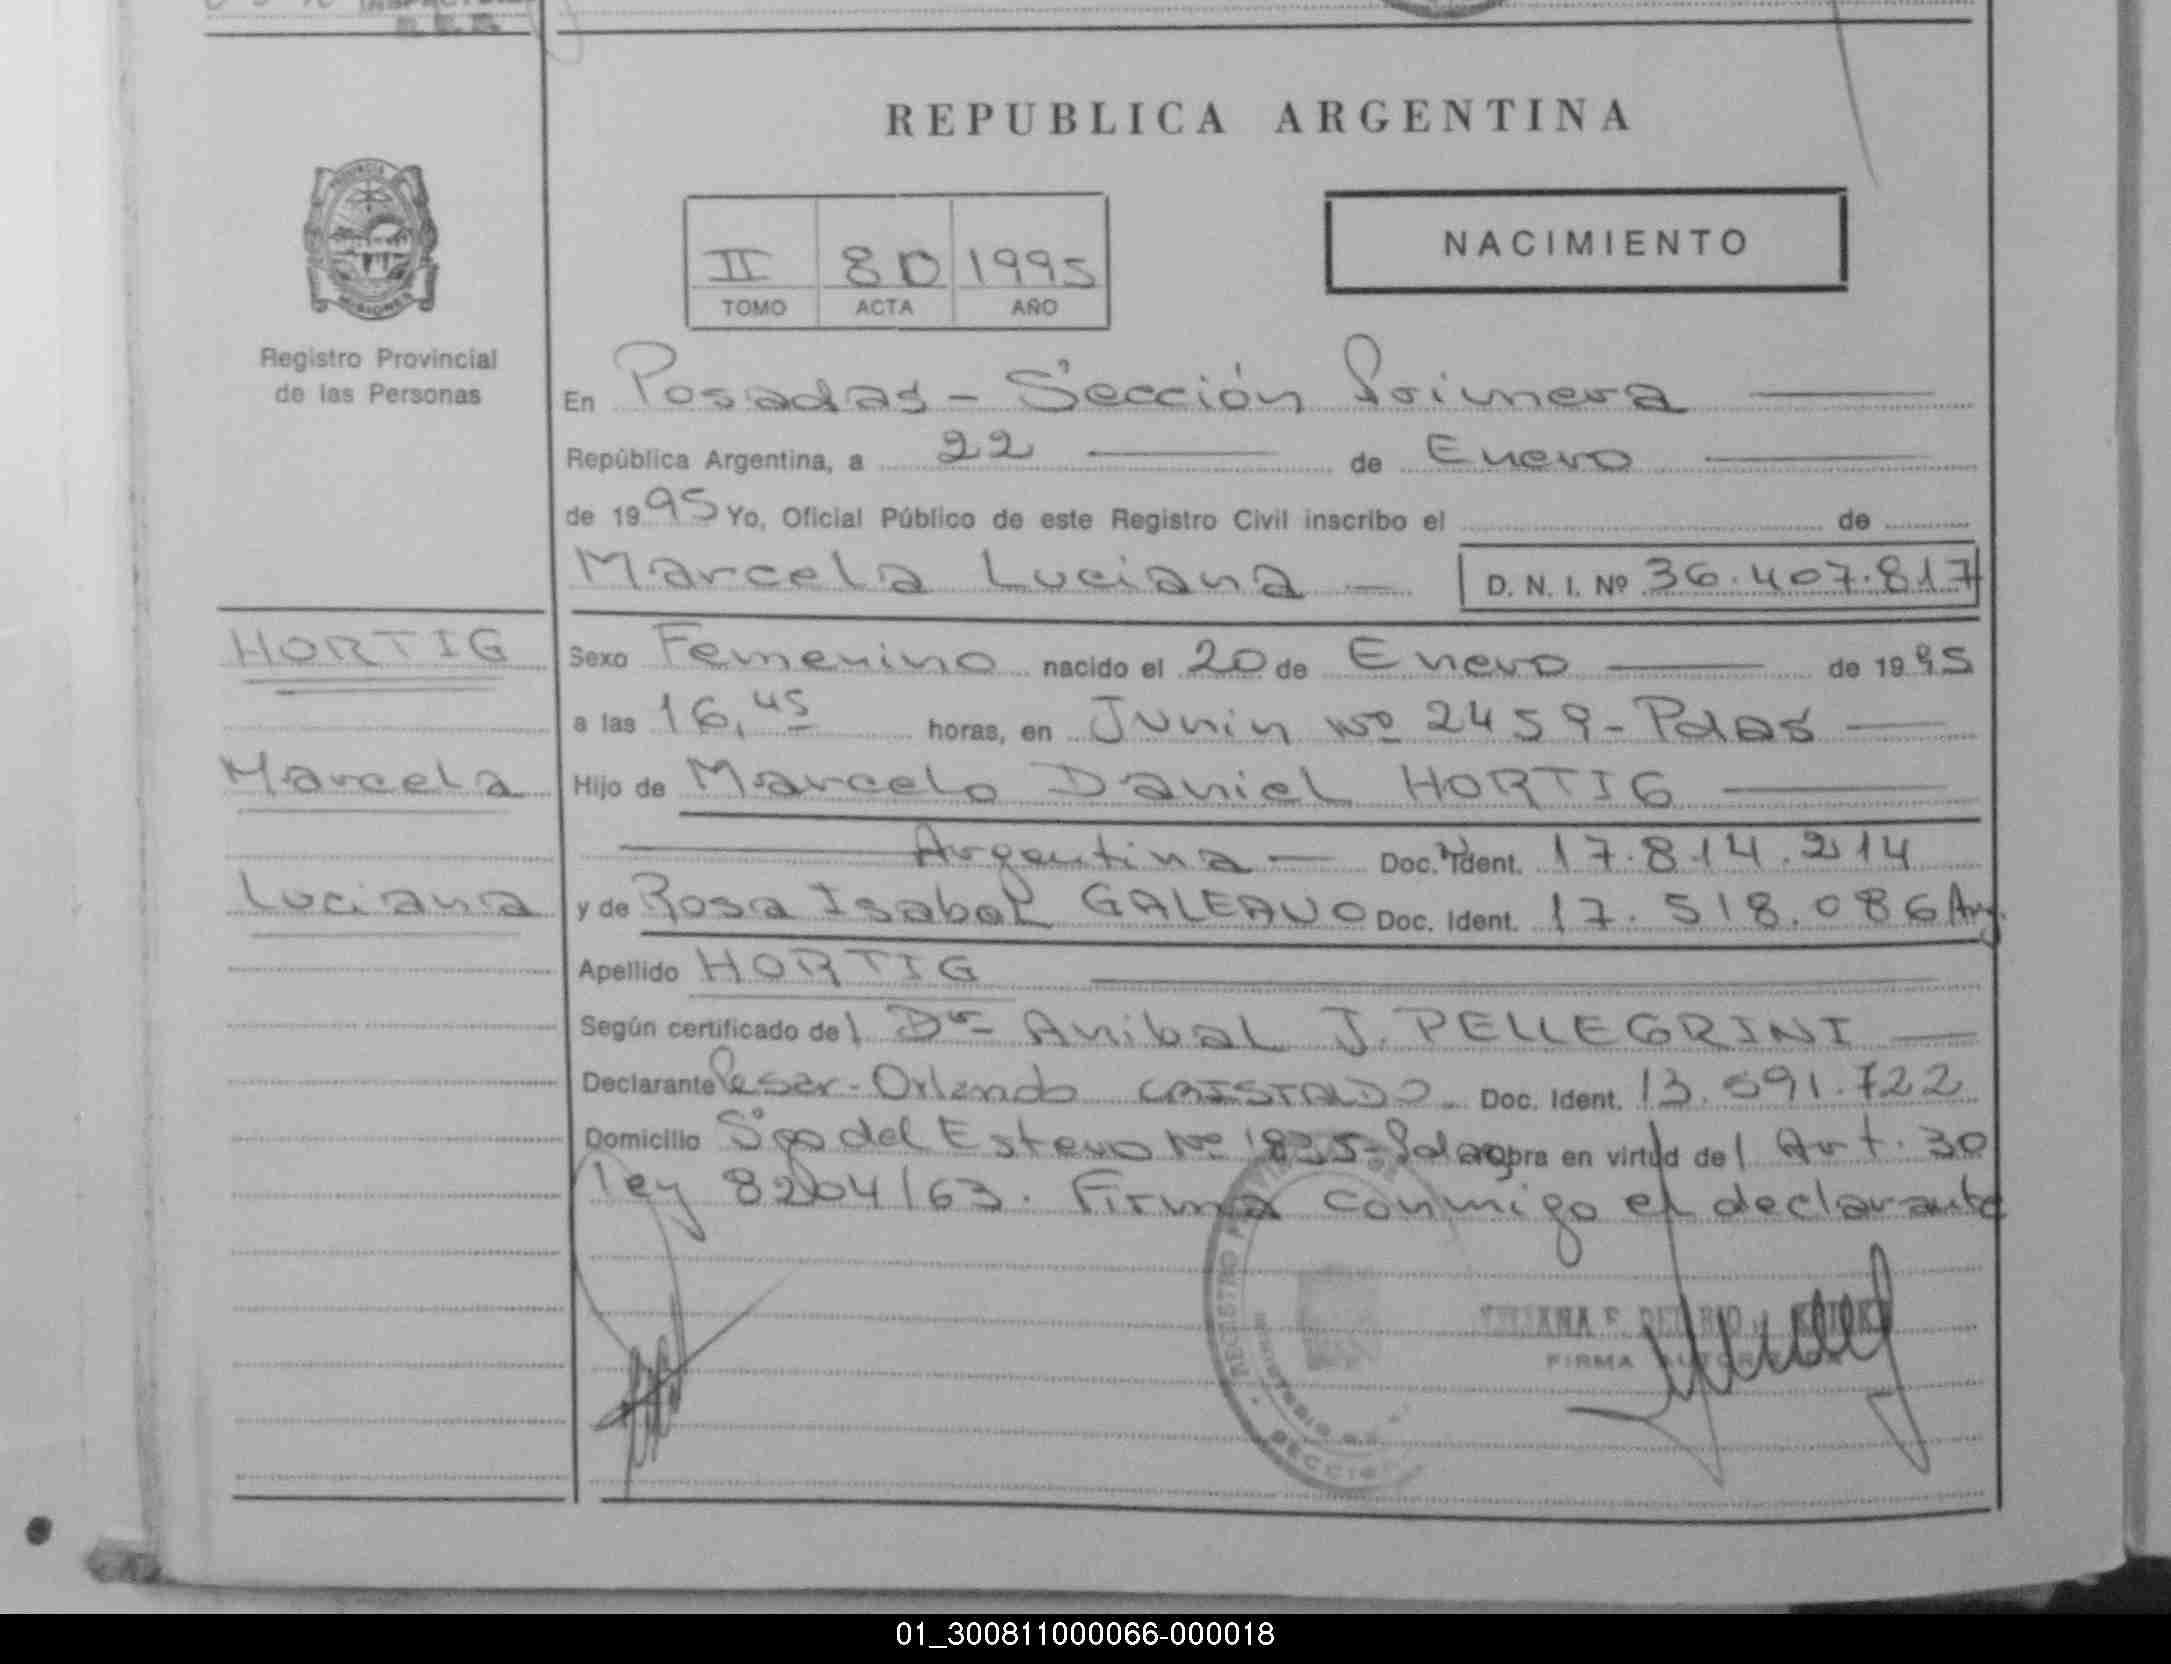 REPUBLICA ARGENTINA
PROVINCIA
MISIONES
Registro Provincial
de las Personas
II 80 1995
TOMO ACTA AÑO
NACIMIENTO
En Posadas - Sección Primera
República Argentina, a 22 de Enero
de 1995 Yo, Oficial Público de este Registro Civil inscribo el de
Marcela Luciana D. N. I. Nº 36.407.817
HORTIG
Marcela
Luciana
Sexo Femenino nacido el 20 de Enero de 1995
a las 16,45 horas, en Junin Nº 2459 - Pdas
Hijo de Marcelo Daniel HORTIG
Argentina Doc. Ident. 17.814.214
y de Rosa Isabel GALEANO Doc. Ident. 17.518.086 Arg.
Apellido HORTIG
Según certificado del Dr Anibal J. PELLEGRINI
Declarante Cesar Orlando CRISTALDO Doc. Ident. 13.591.722
Domicilio Sgo del Estero Nº 1835 - Pdas obra en virtud del Art. 30
ley 8204/63. Firma conmigo el declarante
REGISTRO
MINISTERIO DE
SECCIO
FIRMA AUTORIZADA
01_300811000066-000018